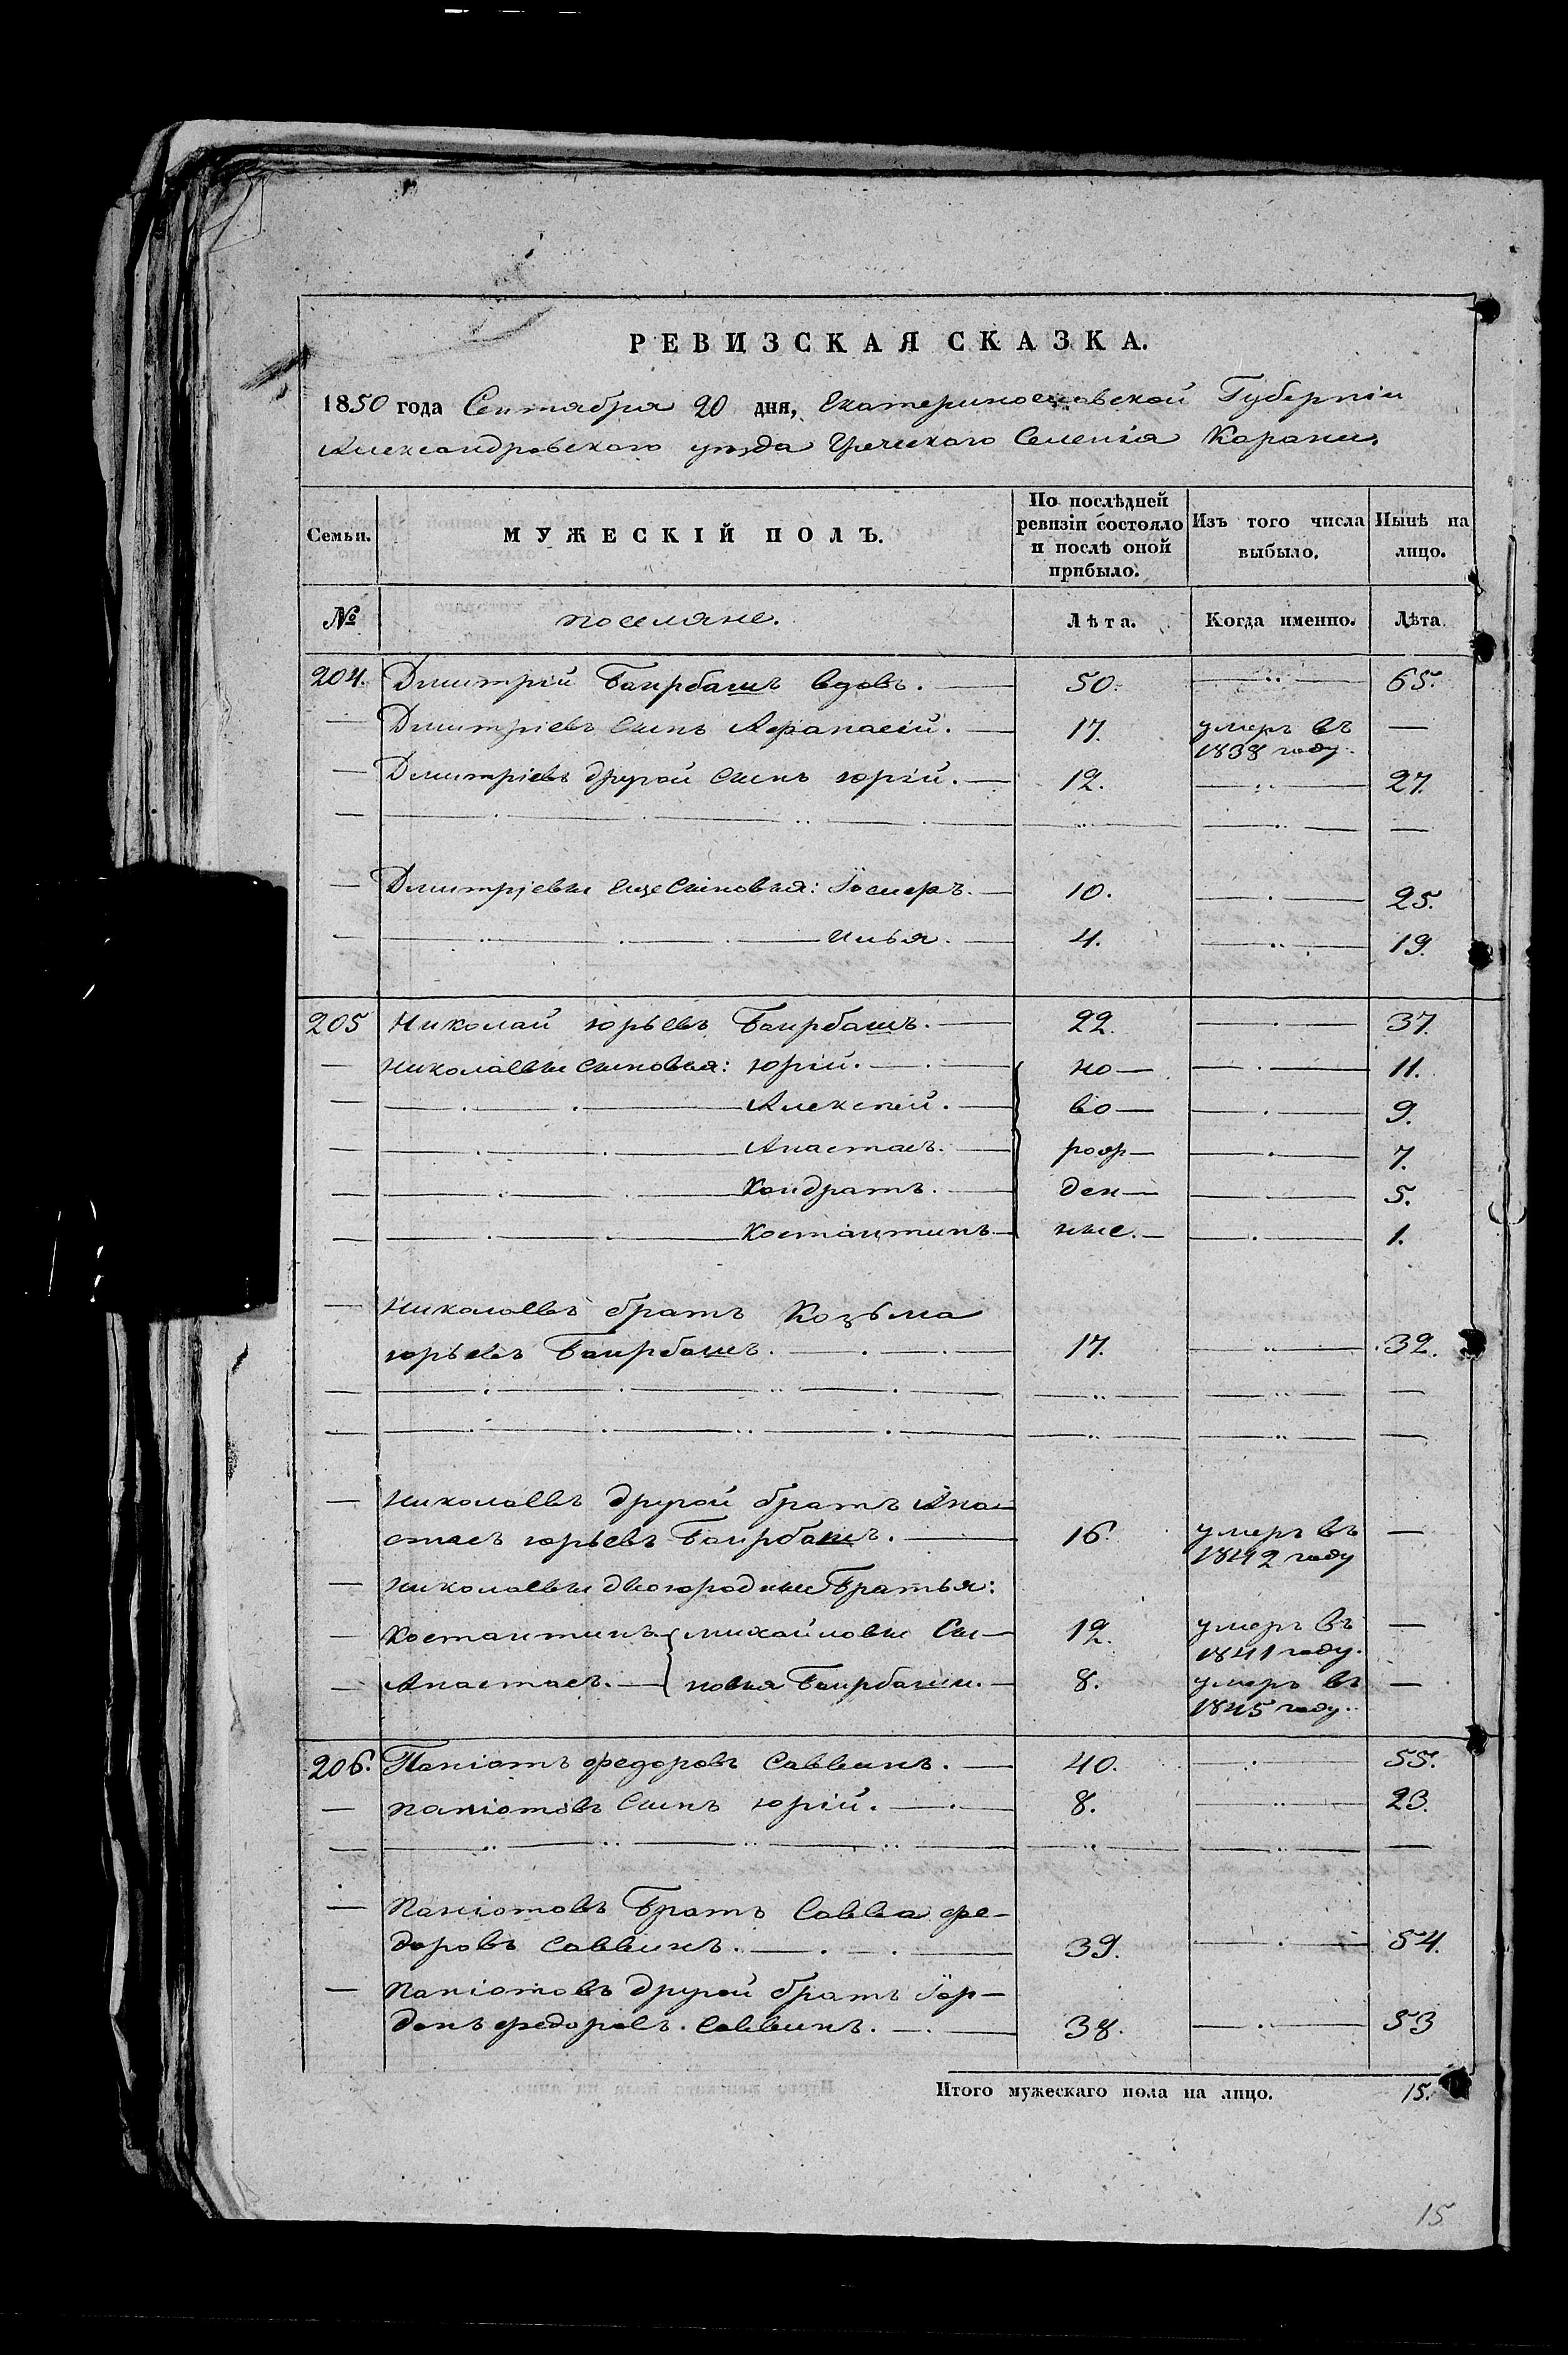 РЕВИЗСКАЯ СКАЗКА.
1850 года Сентября 20 дня, Екатеринославской Губерніи
Александровскаго уезда Греческаго Селенія Карани.
Семьи. МУЖЕСКІЙ ПОЛЪ. По послѣдней ревизіи состояло и послѣ оной прибыло. Изъ того числа выбыло. Нынѣ на лицо.
№ поселяне. Лѣта. Когда именно. Лѣта.
204. Дмитрій Баирбашъ вдовъ. — 50. — 65.
— Дмитріевъ сынъ Афанасій. — 17. умеръ въ 1838 году. —
— Дмитріевъ другой сынъ юрій. — 12. — 27.
— Дмитріевы еще сыновья: — 10. — 25.
— Илья. — 4. — 19.
205 Николай юрьевъ Баирбашъ. — 22. — 37.
— Николаевы сыновья: юрій. — но — — 11.
— Алексей. — во — — 9.
— Анастасъ. — рож — — 7.
— Кондратъ. — ден — — 5.
— Костантинъ — ные. — — 1.
— Николаевъ братъ Козьма
юрьевъ Баирбашъ. — 17. — 32.
— Николаевъ другой братъ Ана-
стасъ юрьевъ Баирбашъ. — 16. умеръ въ 1842 году —
— Николаевы двоюродные Братья:
— Костантинъ { михайловы Сы- 12. умеръ въ 1841 году. —
— Анастасъ. — { новья Баирбаши. — 8. умеръ въ 1845 году. —
206. Паніотъ федоровъ Саввинъ. — 40. — 55.
— паніотовъ сынъ юрій. — 8. — 23.
— Паніотовъ Братъ Савва фе-
доровъ Саввинъ. — 39. — 54.
— Паніотовъ другой братъ Іор-
данъ федоровъ Саввинъ. — 38. — 53
Итого мужескаго пола на лицо. 15.
15